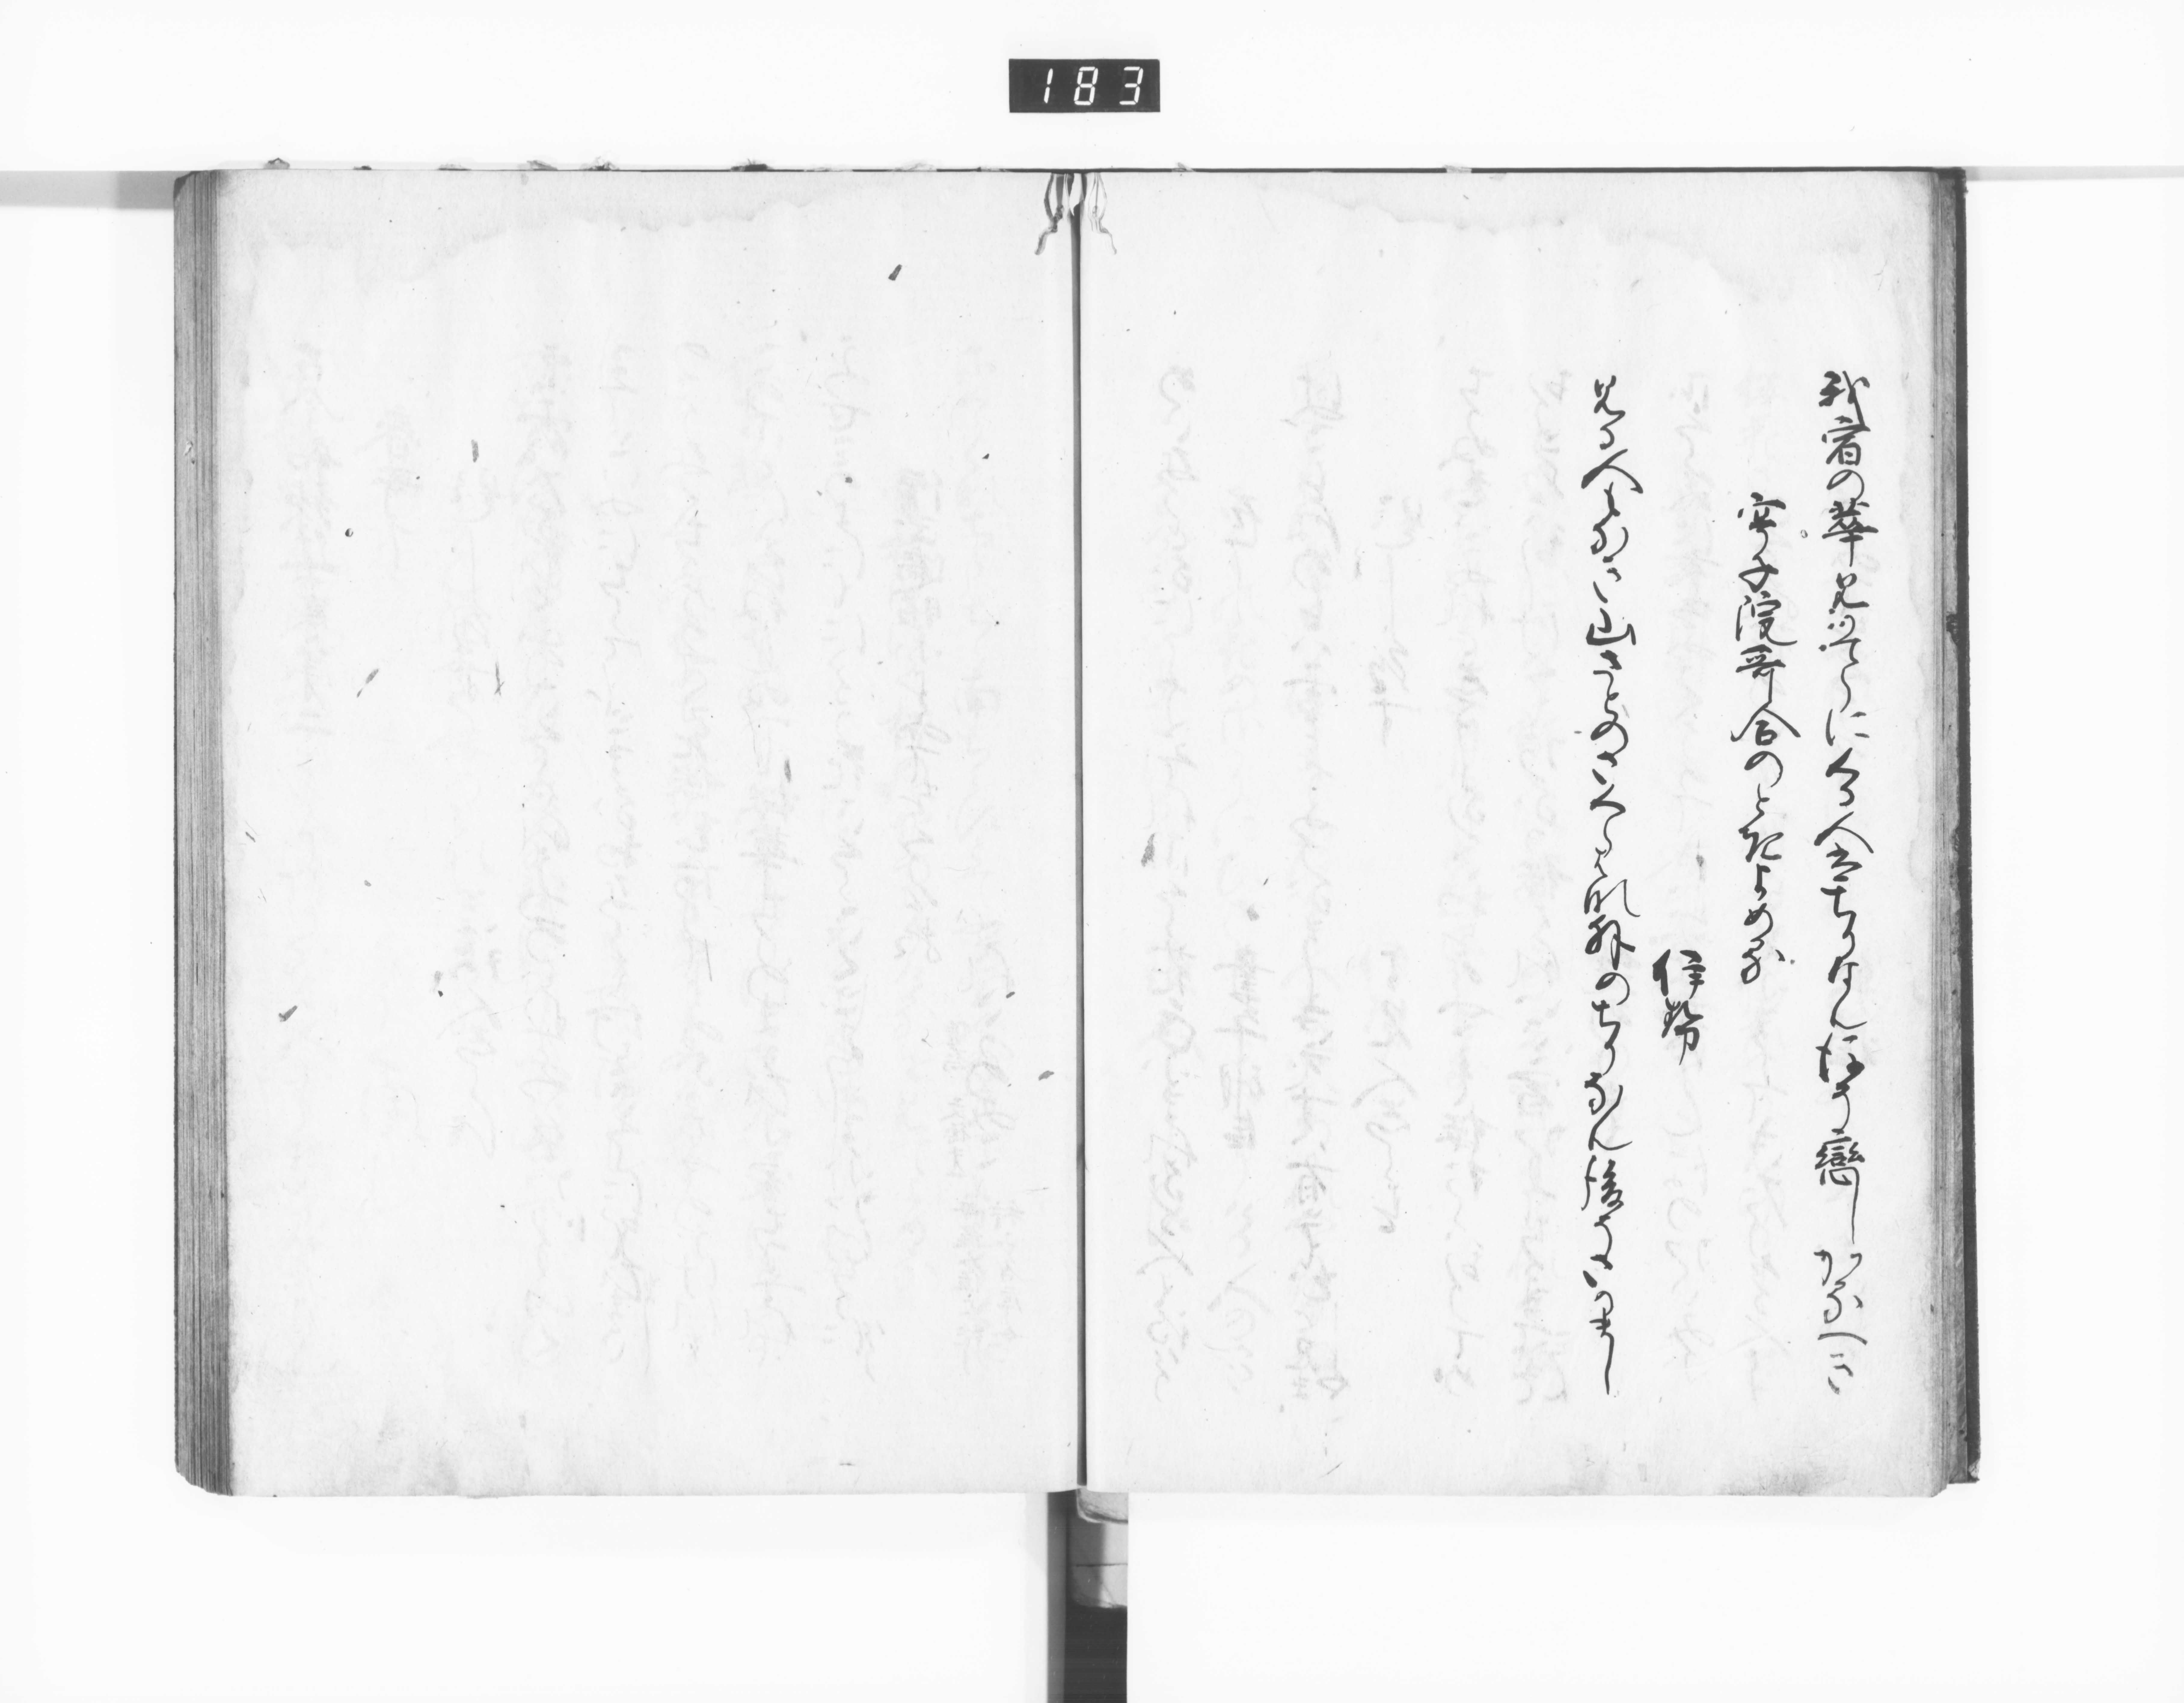 183
我宿の華見かてらに久る人はちりなん後そ戀しかるへき
亭子院哥合のときよめる
伊勢
見る人もなき山さとのさくら花外のちりなん後そさかまし